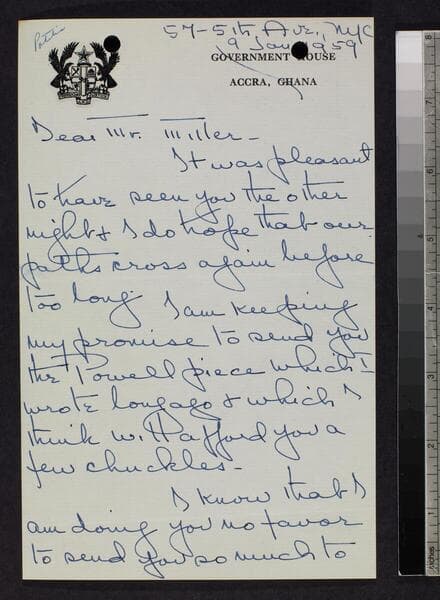 57-5th Ave., NYC
9 Jan 1959
GOVERNMENT HOUSE
ACCRA, GHANA
Dear Mr. Miller -
It was pleasant
to have seen you the other
night & I do hope that our
paths cross again before
too long. I am keeping
my promise to send you
the Powell piece which I
wrote long ago & which I
think will afford you a
few chuckles -
I know that I
am doing you no favor
to send you so much to